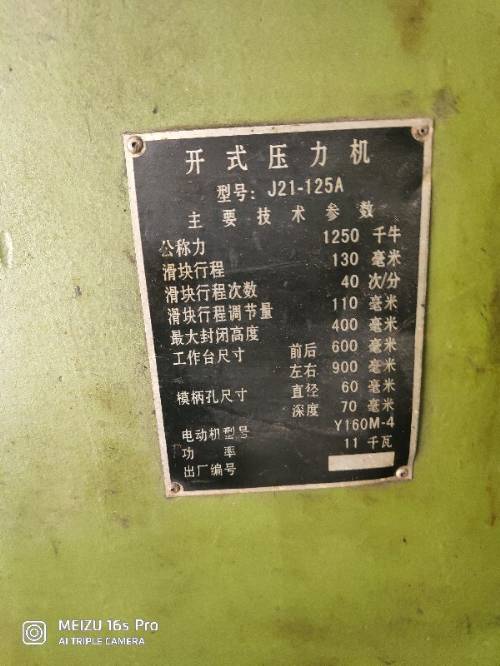 开式压力机
型号: J21-125A
主要技术参数
公称力 1250 千牛
滑块行程 130 毫米
滑块行程次数 40 次/分
滑块行程调节量 110 毫米
最大封闭高度 400 毫米
工作台尺寸 前后 600 毫米
左右 900 毫米
模柄孔尺寸 直径 60 毫米
深度 70 毫米
电动机型号 Y160M-4
功率 11 千瓦
出厂编号
MEIZU 16s Pro
AI TRIPLE CAMERA